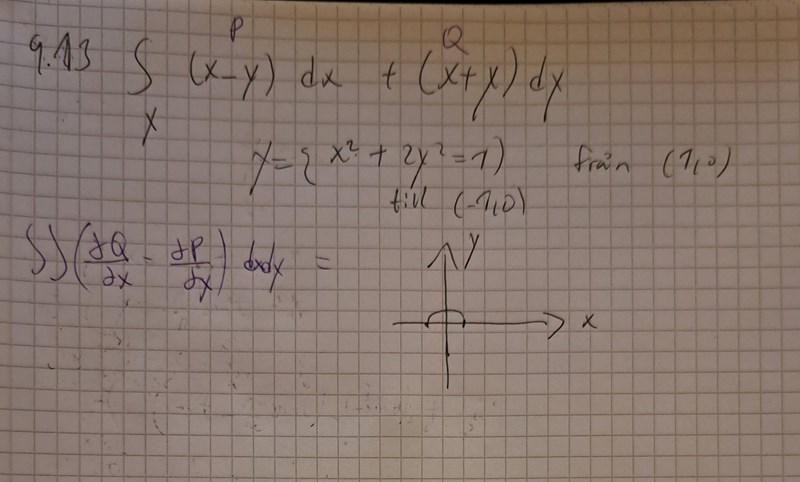 P Q
9.13 ∫ (x-y) dx + (x+y) dy
γ
γ = { x² + 2y² = 1 } från (1,0)
till (-1,0)
∫∫ (∂Q/∂x - ∂P/∂y) dxdy =
y
x